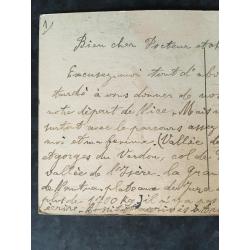 1)
Bien cher Docteur et a
Excusez-moi tout d'abo
tardé à vous donner de no
notre départ de Nice. Mais
surtout avec le parcours asse
moi et ma femme. (Vallée d
et gorges du Verdon, col de
vallée de l'Isère, la Gran
de
plus de 1200 km, il n'a